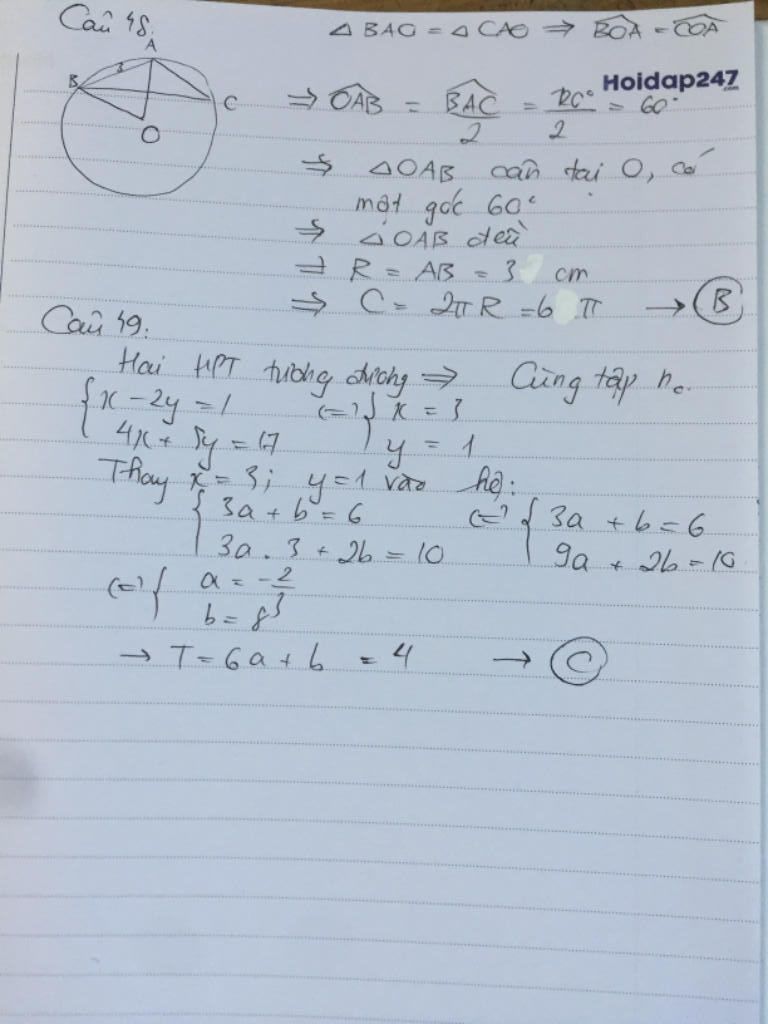 Câu 48.
△BAO = △CAO ⇒ BOA = COA
A
3
B
C
O
Hoidap247
.com
⇒ OAB = BAC/2 = 120°/2 = 60°
⇒ △OAB cân tại O, có
một góc 60°
⇒ △OAB đều
⇒ R = AB = 3 cm
⇒ C = 2πR = 6 π → B
Câu 49.
Hai HPT tương đương ⇒ Cùng tập no.
{ x - 2y = 1 (=) { x = 3
4x + 5y = 17 y = 1
Thay x = 3; y = 1 vào hệ:
{ 3a + b = 6 (=) { 3a + b = 6
3a . 3 + 2b = 10 9a + 2b = 10
(=) { a = -2/3
b = 8
→ T = 6a + b = 4 → C